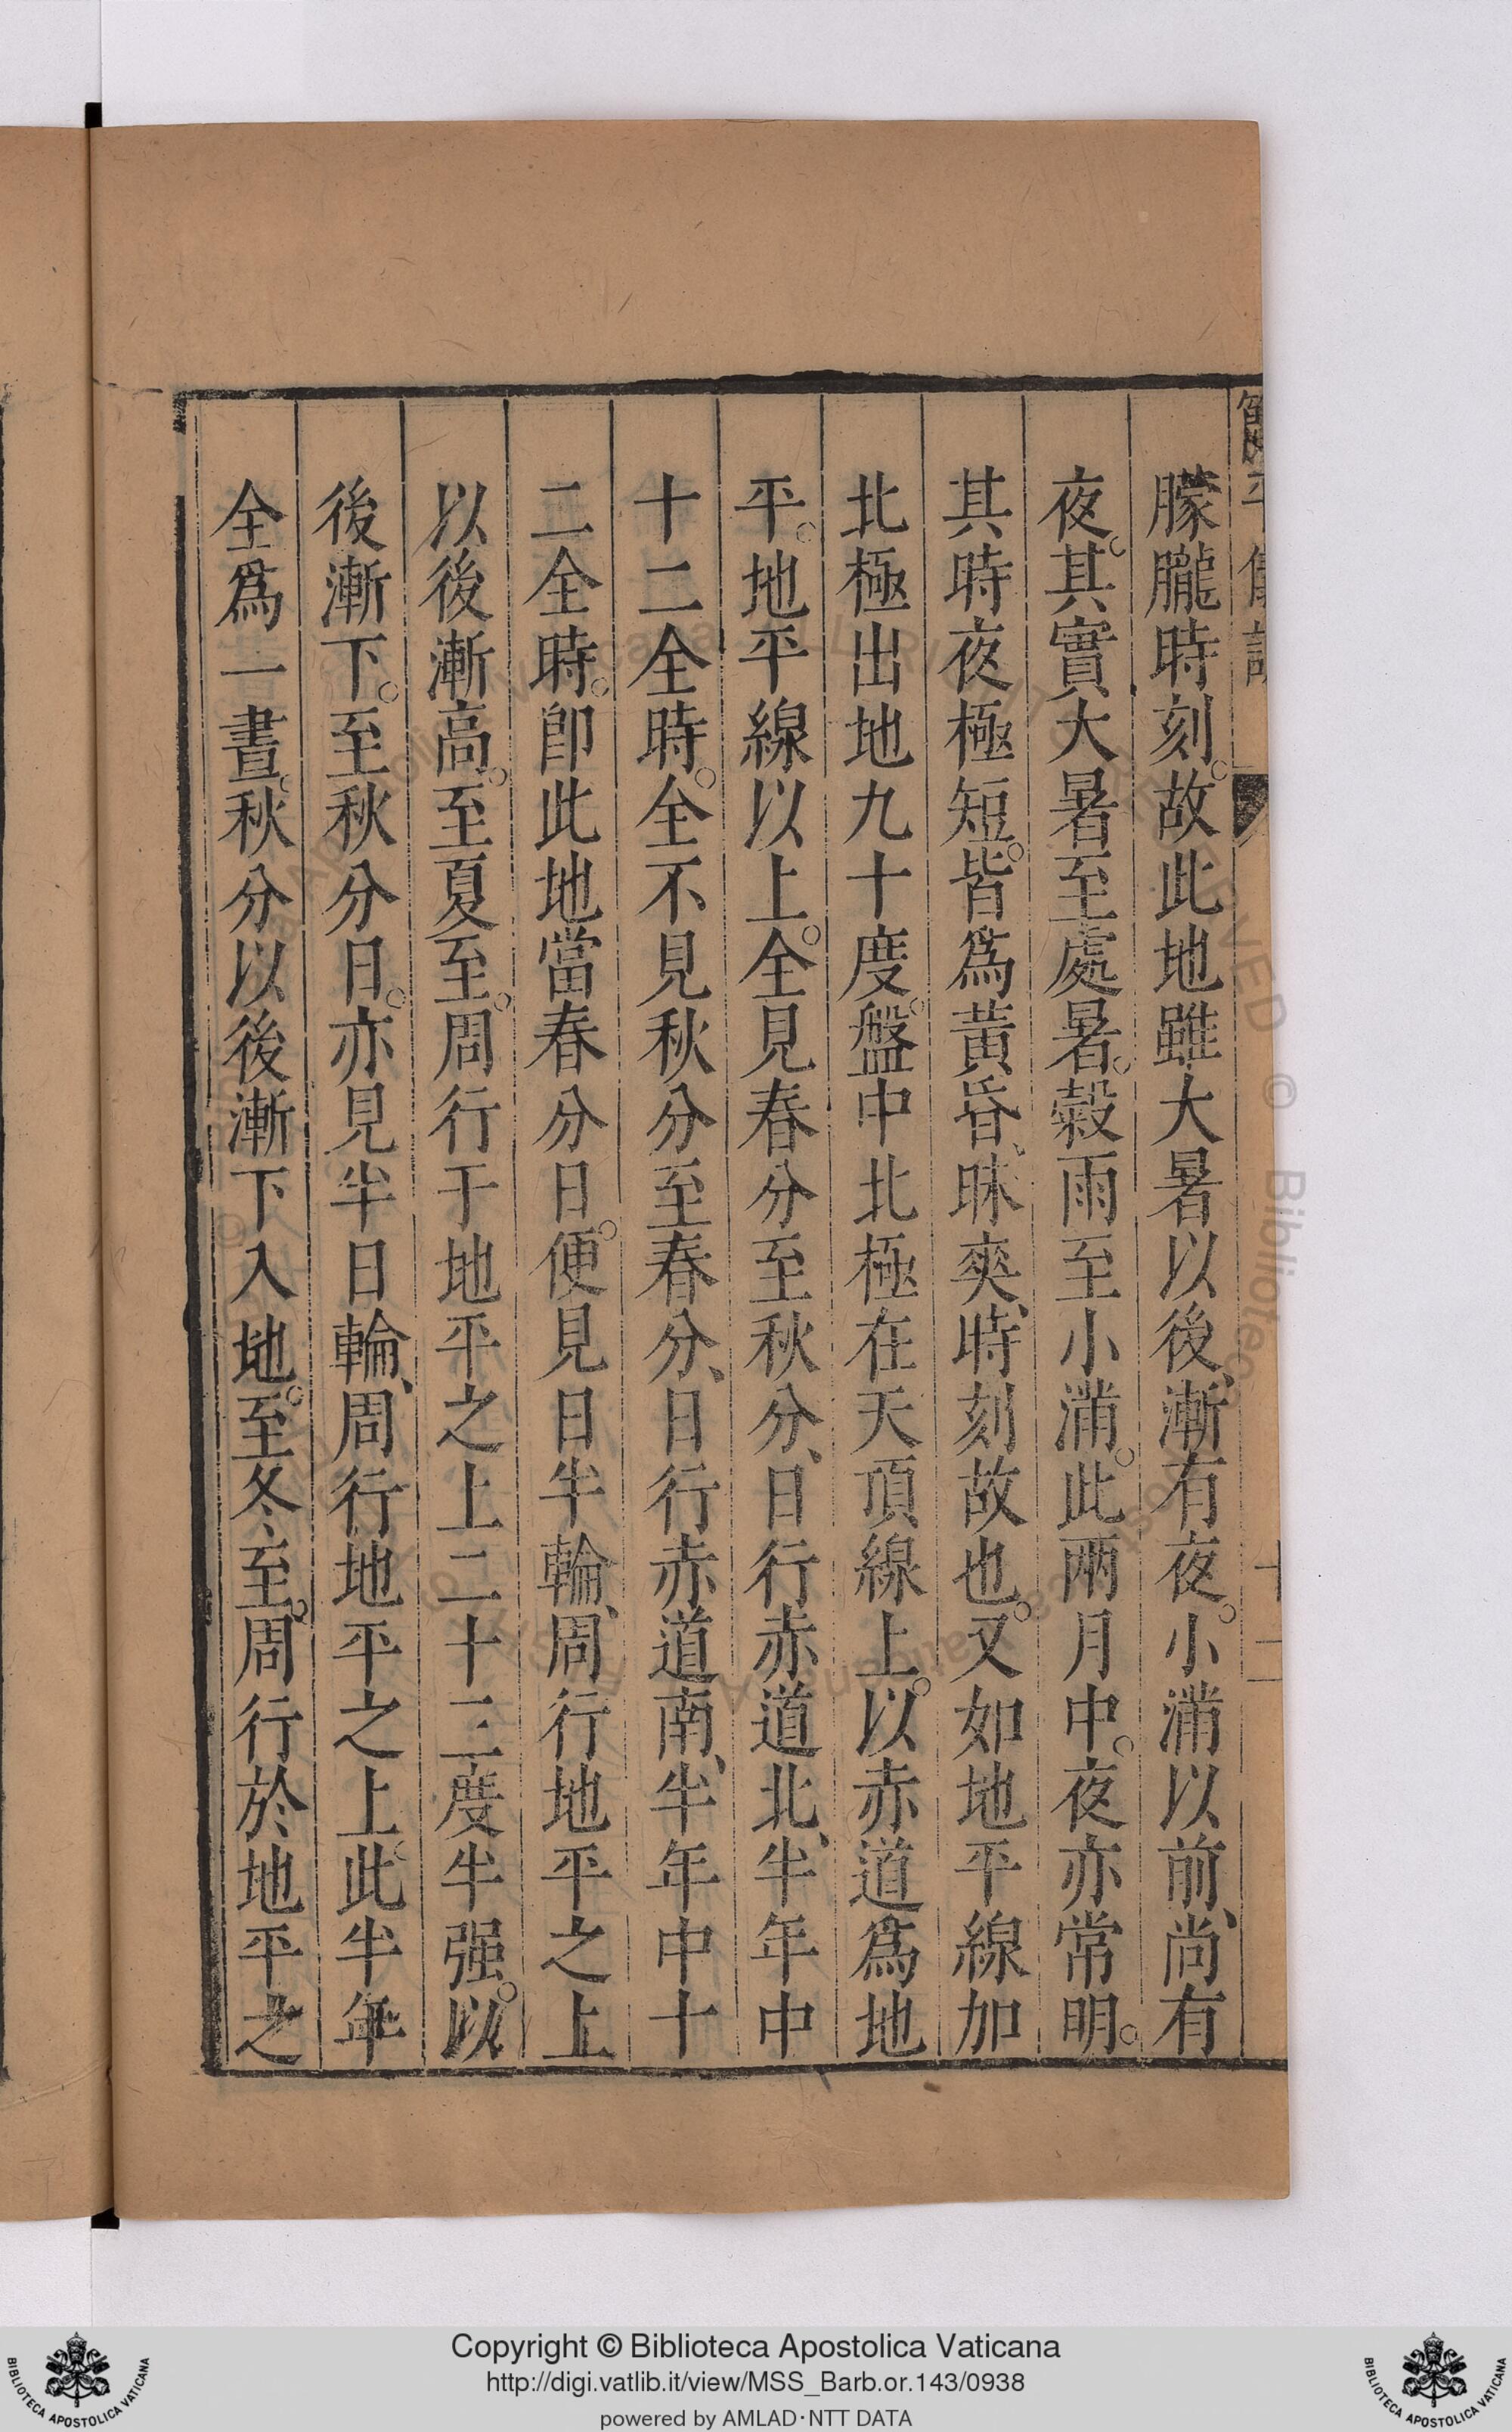 朦朧時刻。故此地雖大暑以後、漸有夜。小滿以前、尚有
夜。其實大暑至處暑。穀雨至小滿。此兩月中。夜亦常明。
其時夜極短。皆爲黃昏、昧爽、時刻故也。又如地平線加
北極出地九十度。盤中北極在天頂線上。以赤道爲地
平。地平線以上。全見春分至秋分、日行赤道北、半年中
十二全時。全不見秋分至春分、日行赤道南、半年中十
二全時。卽此地當春分日。便見日半輪、周行地平之上
以後漸高。至夏至。周行于地平之上二十三度半强。以
後漸下。至秋分日。亦見半日輪、周行地平之上。此半年
全爲一晝。秋分以後漸下入地。至冬至。周行於地平之
十二
Copyright © Biblioteca Apostolica Vaticana
http://digi.vatlib.it/view/MSS_Barb.or.143/0938
powered by AMLAD·NTT DATA
BIBLIOTECA APOSTOLICA VATICANA
BIBLIOTECA APOSTOLICA VATICANA